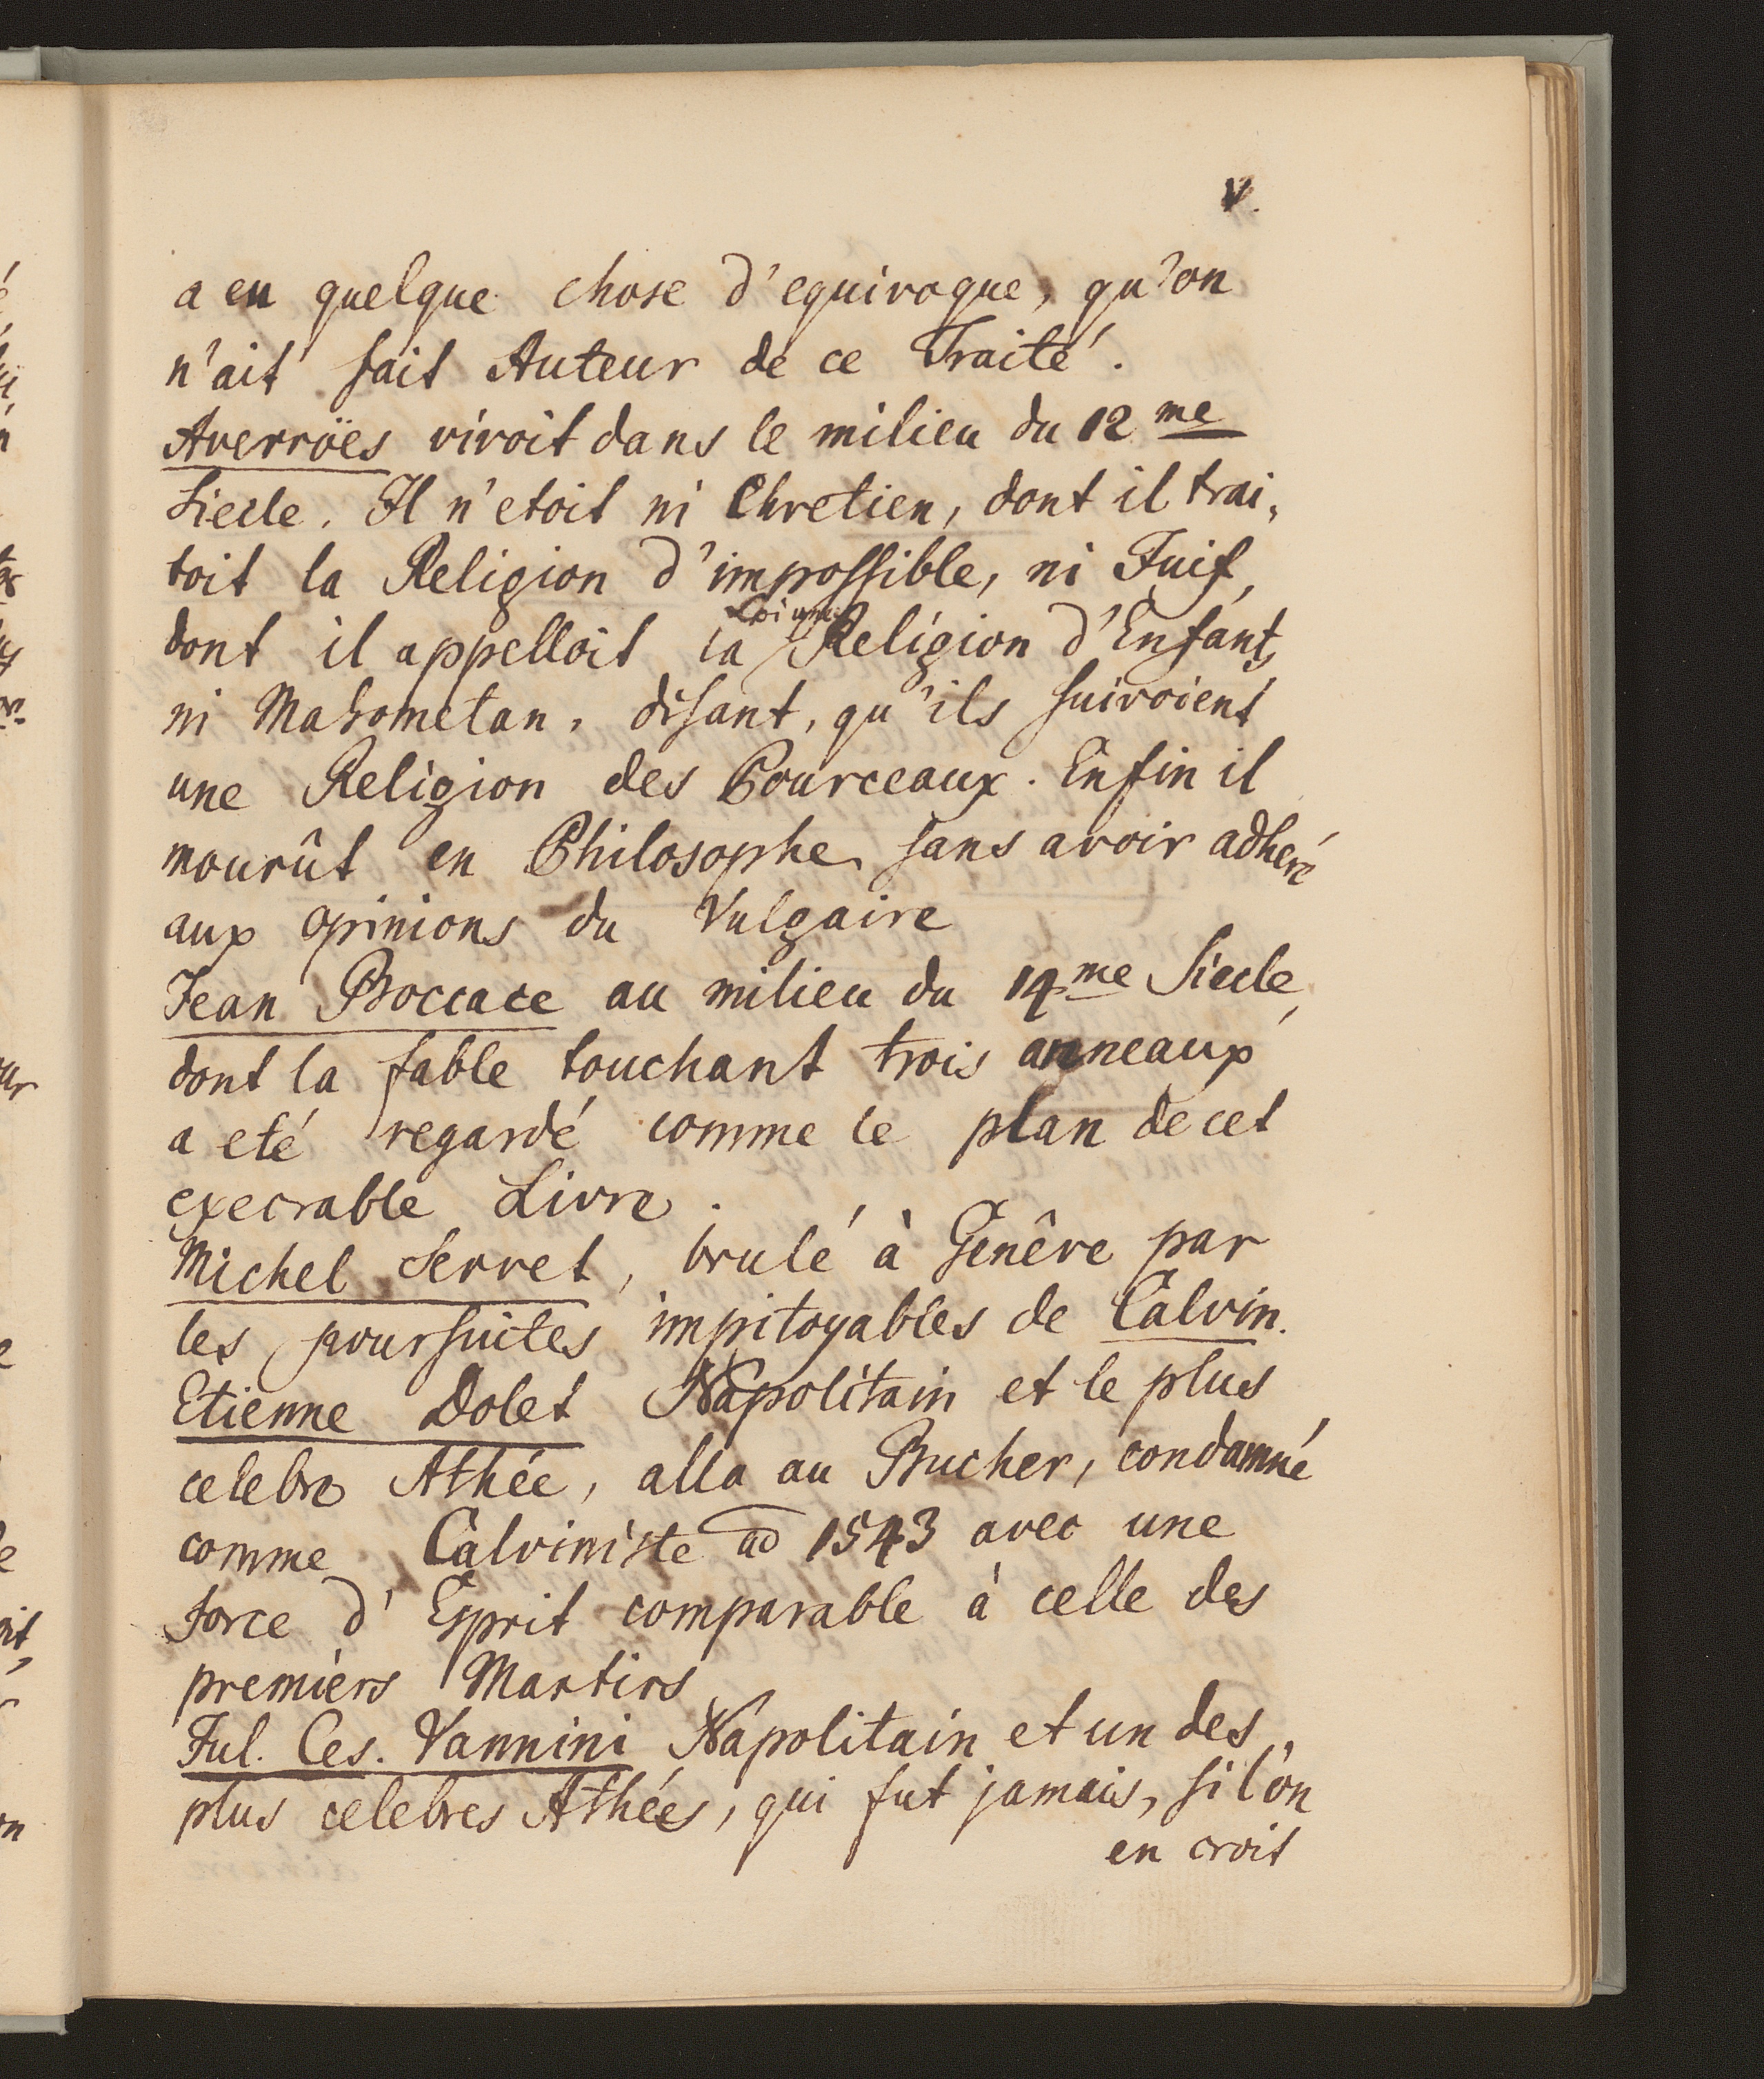 V.
a eu quelque chose d'equivoque, qu'on
n'ait fait Auteur de ce Traité.
Averroës vivoit dans le milieu du 12me
Siecle. Il n'etoit ni Chretien, dont il trai,
toit la Religion d'impossible, ni Juif,
Loi une
dont il appelloit la Religion d'Enfants,
ni Mahometan, disant, qu'ils suivoient
une Religion des Pourceaux. Enfin il
mourût en Philosophe, sans avoir adheré
aux opinions du Vulgaire
Jean Boccace au milieu du 14me Siecle,
dont la fable touchant trois anneaux
a eté regardé comme le plan de cet
execrable Livre.
Michel Servet, brulé à Genêve par
les poursuites impitoyables de Calvin.
Etienne Dolet Napolitain et le plus
celebre Athée, alla au Bucher, condamné
comme Calviniste ao 1543 avec une
force d'Esprit comparable à celle des
premiers Martirs
Jul. Ces. Vannini Napolitain et un des
plus celebres Athées, qui fut jamais, si l'on
en croit